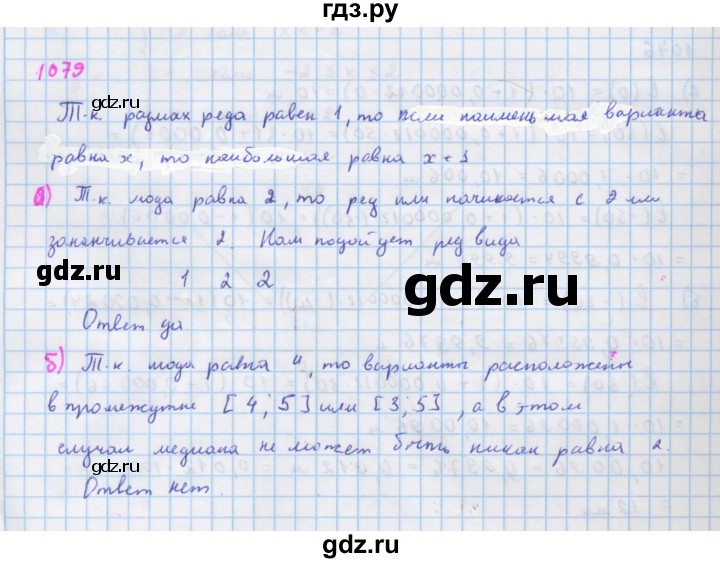 гдз.ру
1079
Т.к. размах ряда равен 1, то если наименьшая варианта
равна x, то наибольшая равна x+1
а) Т.к. мода равна 2, то ряд или начинается с 2 или
заканчивается 2. Нам подойдет ряд вида
gdz.ru
gdz.ru
1 2 2
Ответ да
gdz.ru
б) Т.к. мода равна 4, то варианты расположены
в промежутке [4; 5] или [3; 5], а в этом
случае медиана не может быть никак равна 2.
gdz.ru
gdz.ru
Ответ нет.
gdz.ru